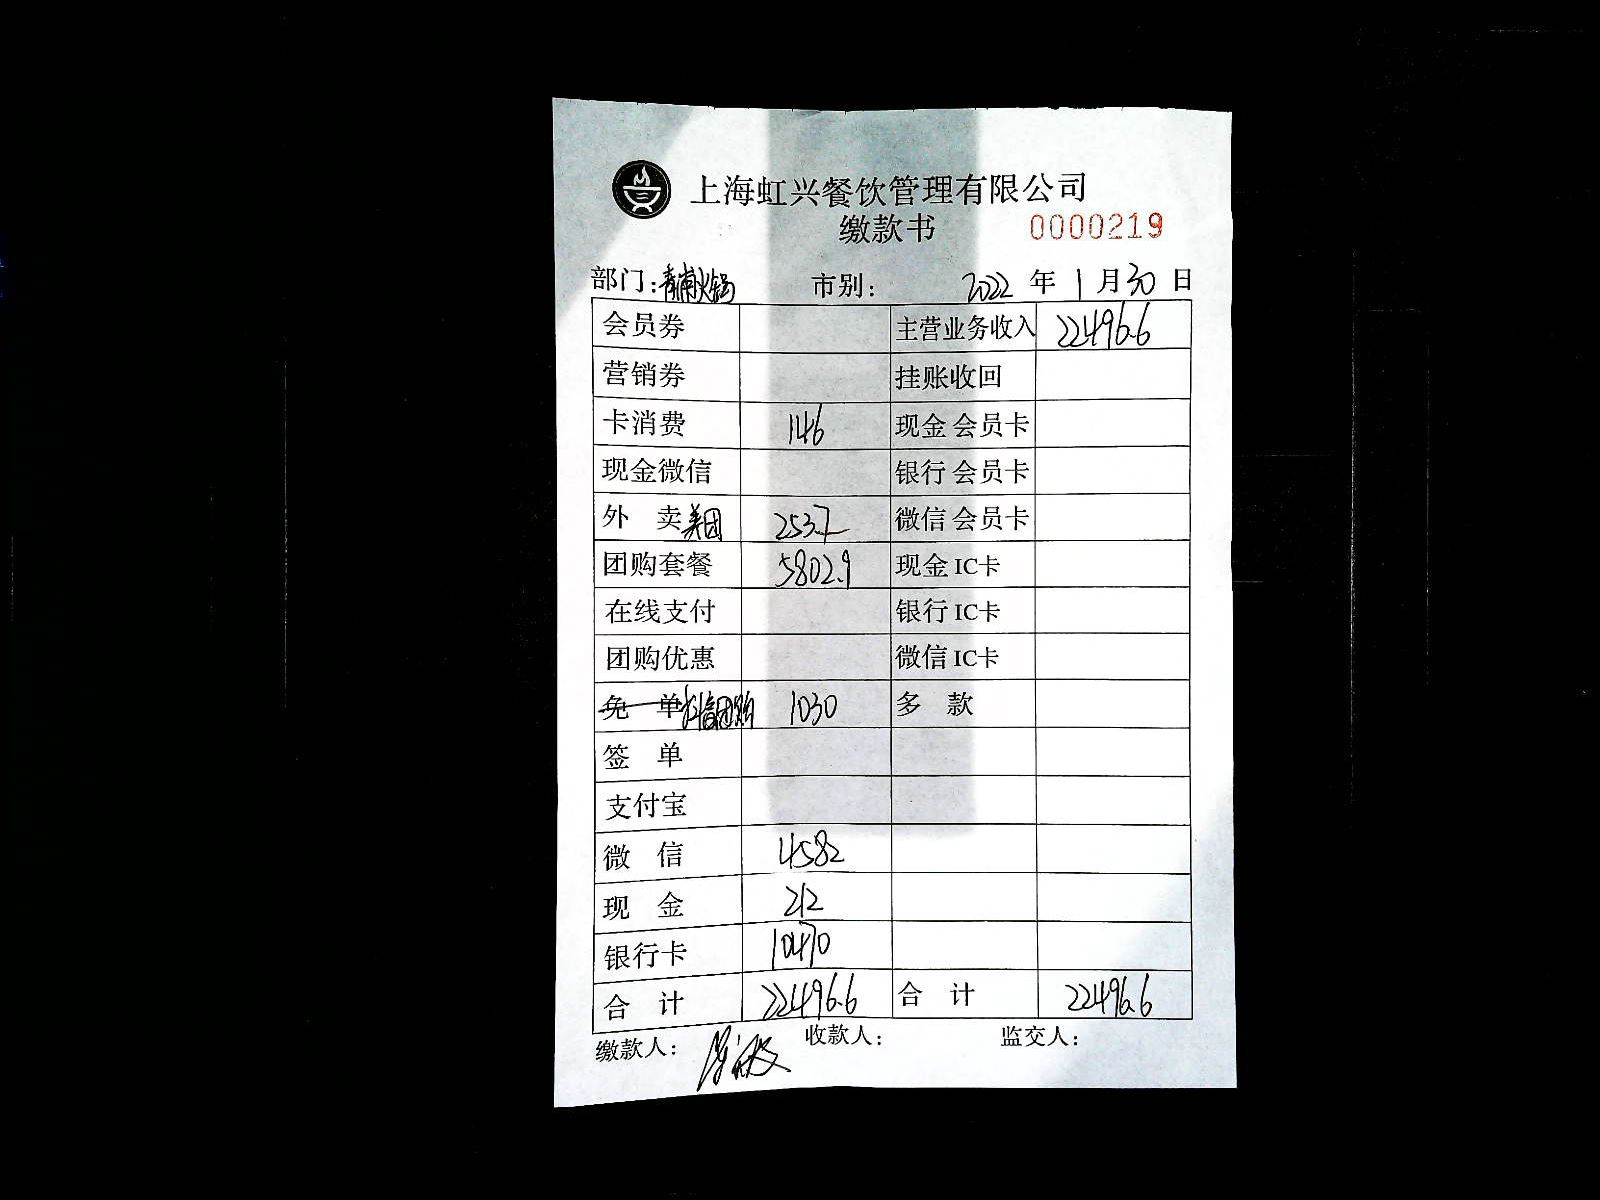 上海虹兴餐饮管理有限公司
缴款书 0000219
部门:青浦火锅 市别: 2022 年 1 月 30 日
会员券 主营业务收入 22496.6
营销券 挂账收回
卡消费 146 现金 会员卡
现金微信 银行 会员卡
外 卖 美团 253.7 微信 会员卡
团购套餐 5802.9 现金 IC卡
在线支付 银行 IC卡
团购优惠 微信 IC卡
免 单 抖音团购 1030 多 款
签 单
支付宝
微 信 4582
现 金 212
银行卡 10470
合 计 22496.6 合 计 22496.6
缴款人: 收款人: 监交人: